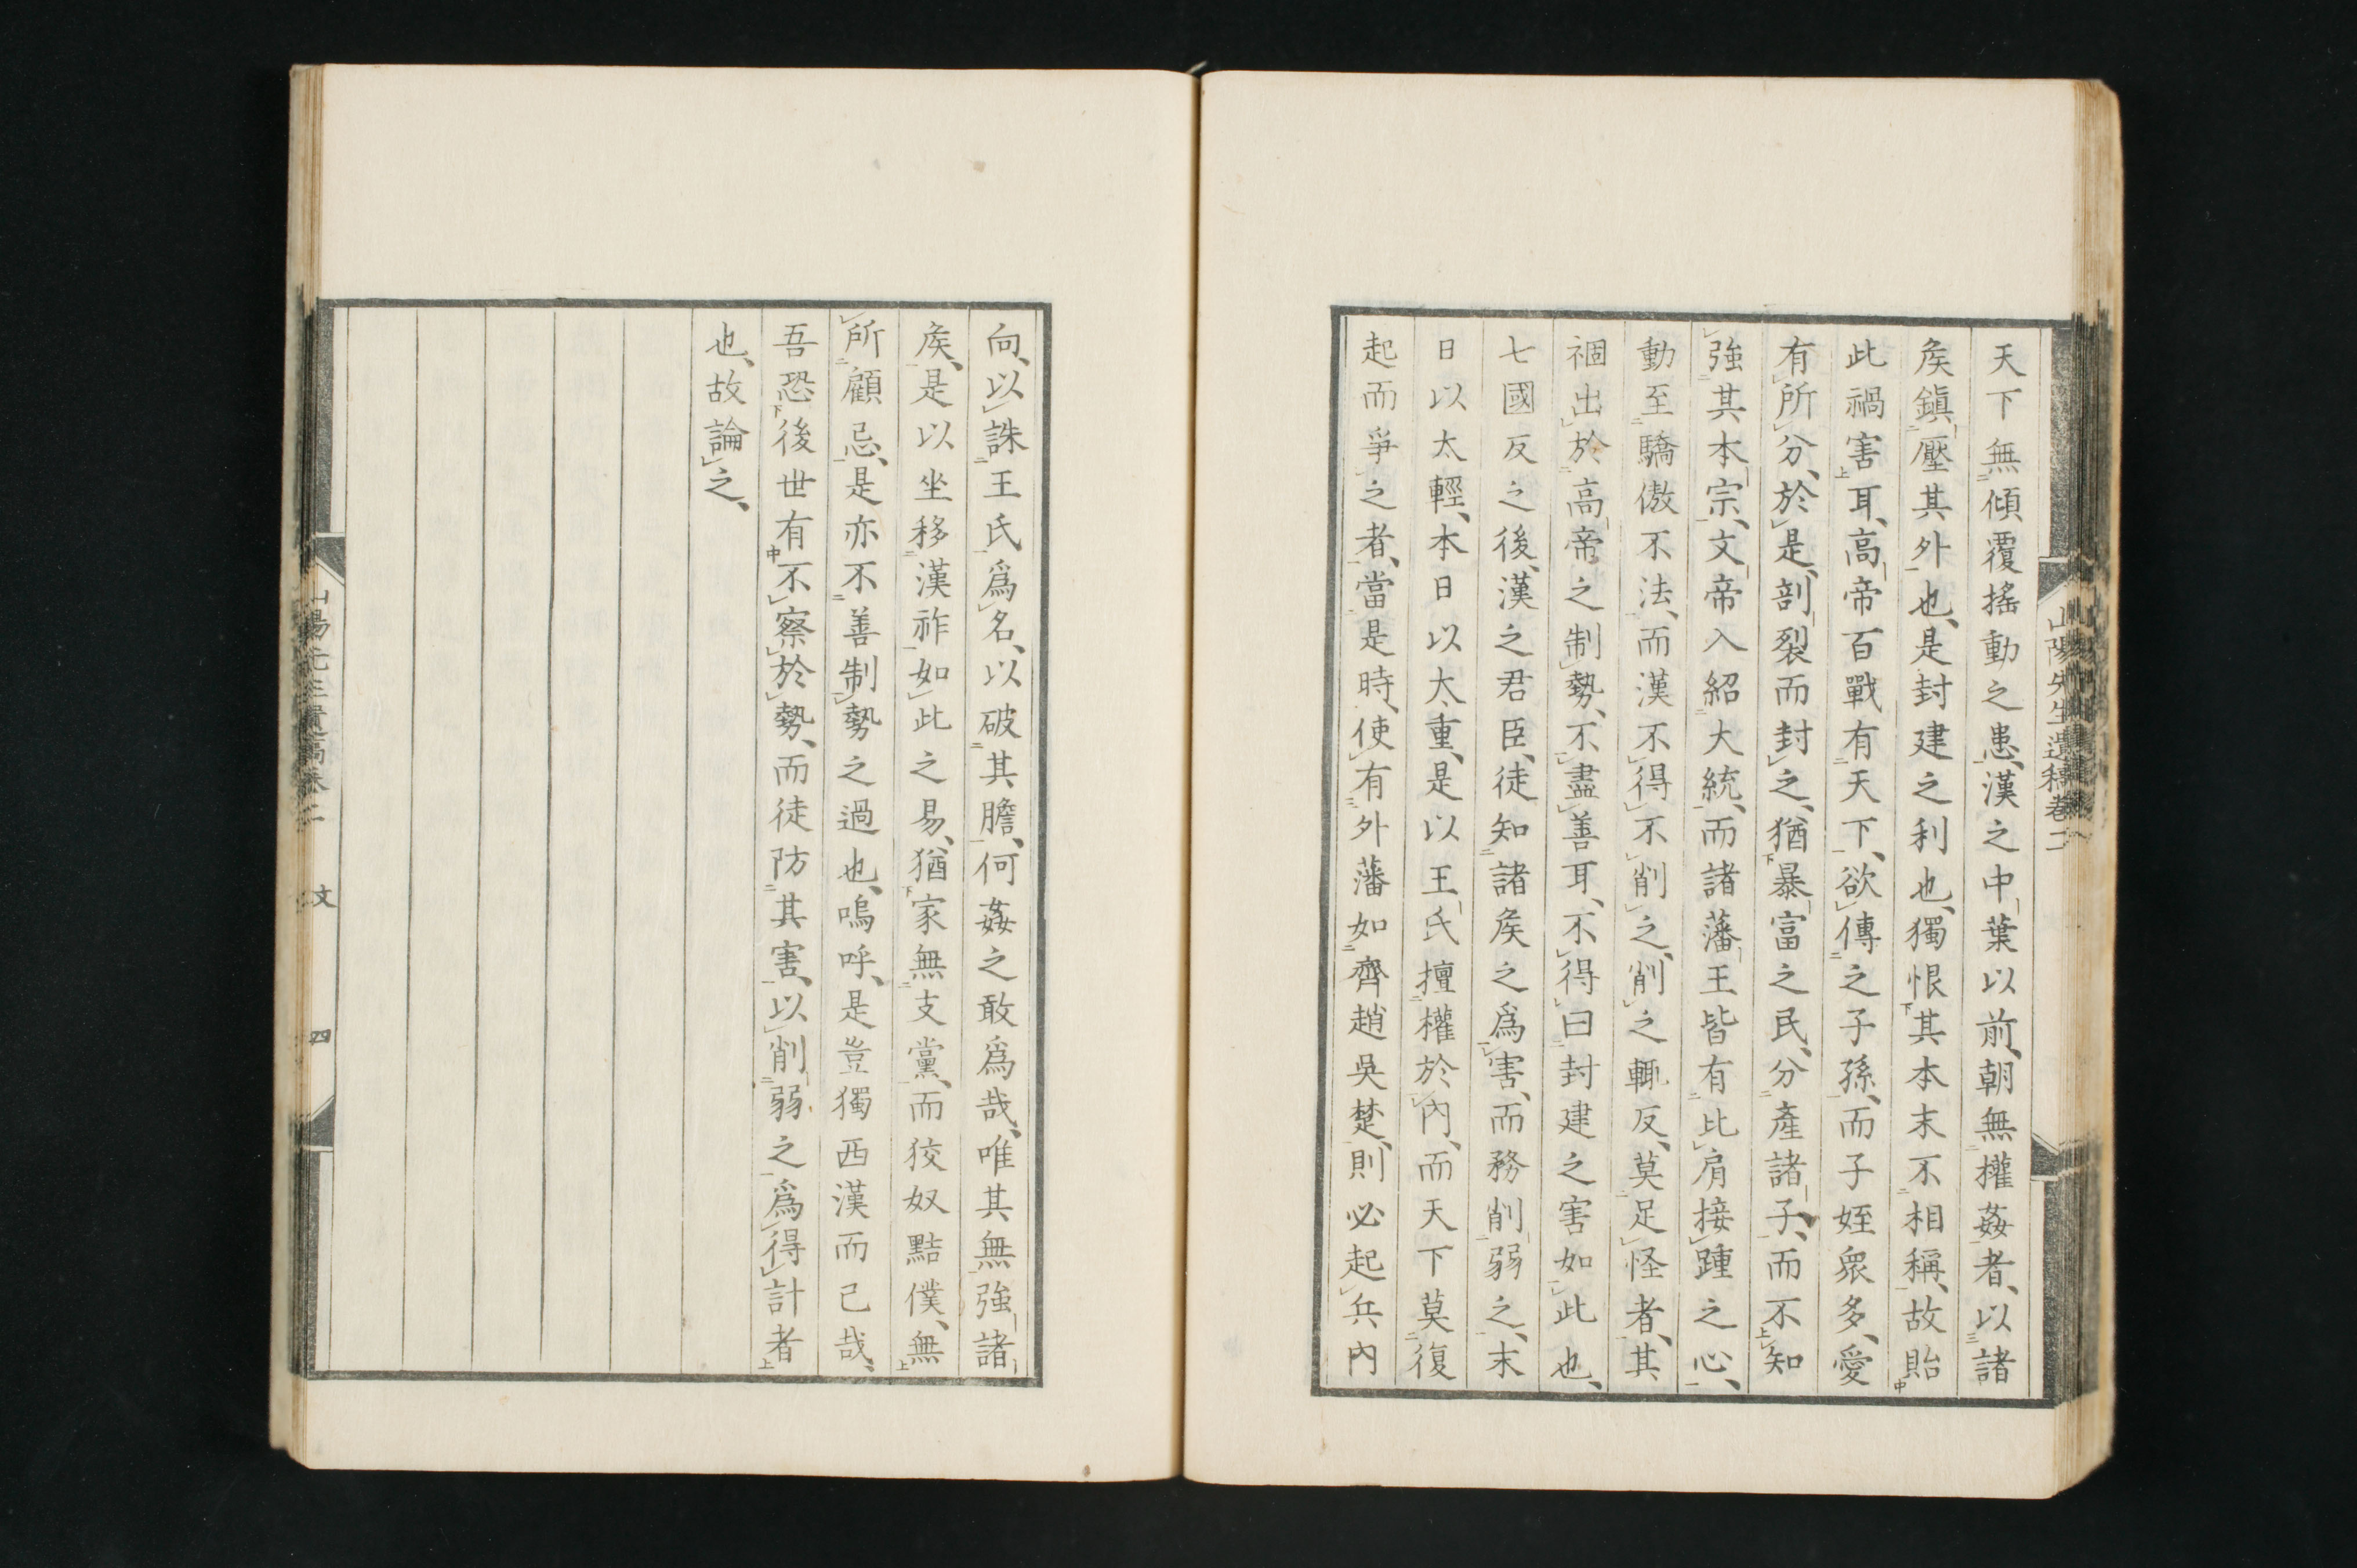 天下無傾覆搖動之患、漢之中葉以前、朝無權姦者、以諸
矦鎭壓其外也、是封建之利也、獨恨其本末不相稱、故貽
此禍害耳、高帝百戰有天下、欲傳之子孫、而子姪衆多、愛
有所分、於是、剖裂而封之、猶暴富之民、分產諸子、而不知
強其本宗、文帝入紹大統、而諸藩王皆有比肩接踵之心、
動至驕傲不法、而漢不得不削之、削之輒反、莫足怪者、其
祻出於高帝之制勢、不盡善耳、不得曰封建之害如此也、
七國反之後、漢之君臣、徒知諸矦之爲害、而務削弱之、末
日以太輕、本日以太重、是以王氏擅權於內、而天下莫復
起而爭之者、當是時、使有外藩如齊趙吳楚、則必起兵內
山陽先生遺稿卷二
向、以誅王氏爲名、以破其膽、何姦之敢爲哉、唯其無強諸
矦、是以坐移漢祚如此之易、猶家無支黨、而狡奴黠僕、無
所顧忌、是亦不善制勢之過也、嗚呼、是豈獨西漢而已哉、
吾恐後世有不察於勢、而徒防其害、以削弱之爲得計者
也、故論之、
文 四